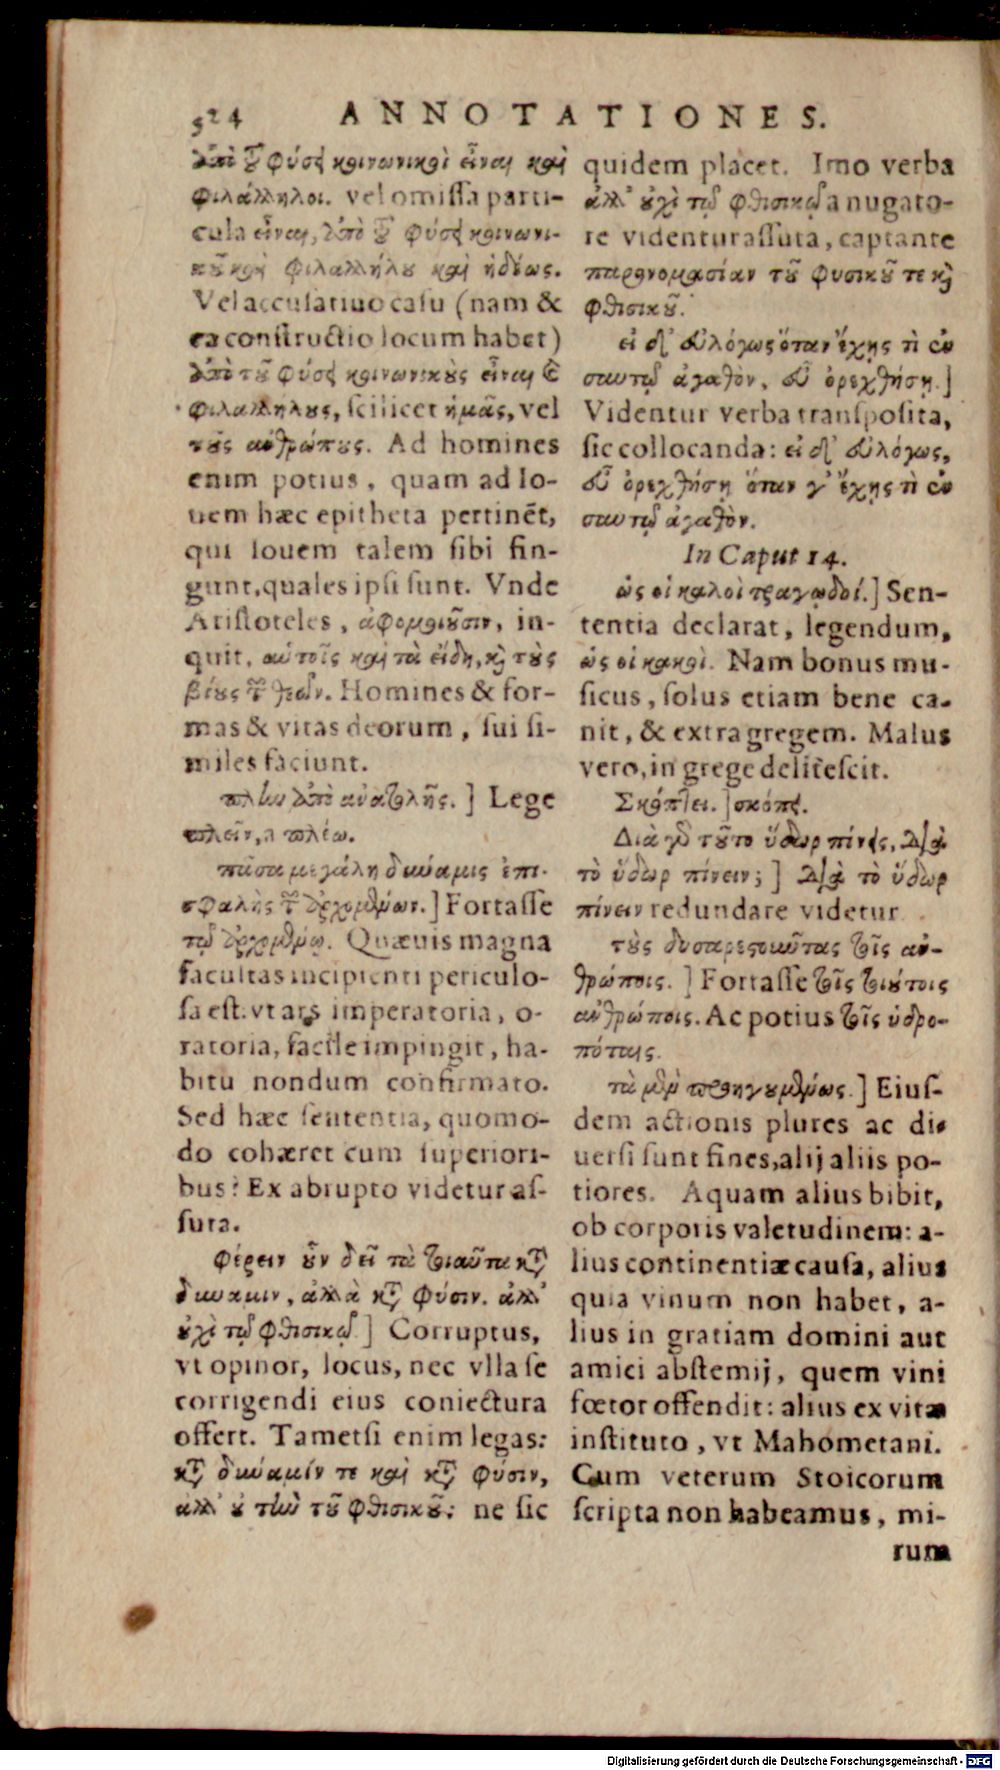 524 ANNOTATIONES.
ἀπὸ τοῦ φύσει κοινωνικοὶ εἶναι καὶ
φιλάλληλοι. vel omiſſa parti-
cula εἶναι, ἀπὸ τοῦ φύσει κοινωνι-
κοῦ καὶ φιλαλλήλου καὶ ἡδέως.
Vel accuſatiuo caſu (nam &
ea conſtructio locum habet)
ἀπὸ τοῦ φύσει κοινωνικοὺς εἶναι καὶ
φιλαλλήλους, ſcilicet ἡμᾶς, vel
τοὺς ἀνθρώπους. Ad homines
enim potius, quam ad Io-
uem hæc epitheta pertinẽt,
qui Iouem talem ſibi fin-
gunt, quales ipſi ſunt. Vnde
Ariſtoteles, ἀφομοιοῦσιν, in-
quit, αὑτοῖς καὶ τὰ εἴδη, καὶ τοὺς
βίους τῶν θεῶν. Homines & for-
mas & vitas deorum, ſui ſi-
miles faciunt.
πλὴν ἀπὸ ἀναβολῆς.] Lege
πλεῖν, a πλέω.
πᾶσα μεγάλη δύναμις ἐπι-
σφαλὴς τῶν ἀρχομένων.] Fortaſſe
τῷ ἀρχομένῳ. Quæuis magna
facultas incipienti periculo-
ſa eſt. vt ars imperatoria, o-
ratoria, facile impingit, ha-
bitu nondum confirmato.
Sed hæc ſententia, quomo-
do cohæret cum ſuperiori-
bus? Ex abrupto videtur aſ-
ſuta.
φέρειν οὖν δεῖ τὰ τοιαῦτα κατὰ
δύναμιν, ἀλλὰ κατὰ φύσιν. ἀλλ'
οὐχὶ τῷ φθισικῷ.] Corruptus,
vt opinor, locus, nec vlla ſe
corrigendi eius coniectura
offert. Tametſi enim legas:
κατὰ δύναμίν τε καὶ κατὰ φύσιν,
ἀλλ' οὐ τὴν τοῦ φθισικοῦ: ne ſic
quidem placet. Imo verba
ἀλλ' οὐχὶ τῷ φθισικῷ a nugato-
re videntur aſſuta, captante
παρονομασίαν τοῦ φυσικοῦ τε καὶ
φθισικοῦ.
εἰ δ' εὐλόγως ὅταν ἔχῃς τὶ ἐν
σαυτῷ ἀγαθὸν, εὖ ὀρεχθήσῃ.]
Videntur verba tranſpoſita,
ſic collocanda: εἰ δ' εὐλόγως,
εὖ ὀρεχθήσῃ ὅταν γ' ἔχῃς τὶ ἐν
σαυτῷ ἀγαθὸν.
In Caput 14.
ὡς οἱ καλοὶ τραγῳδοί.] Sen-
tentia declarat, legendum,
ὡς οἱ κακοὶ. Nam bonus mu-
ſicus, ſolus etiam bene ca-
nit, & extra gregem. Malus
vero, in grege deliteſcit.
Σκόπτει.] σκόπει.
Διὰ γὰρ τοῦτο ὕδωρ πίνεις, διὰ
τὸ ὕδωρ πίνειν;] διὰ τὸ ὕδωρ
πίνειν redundare videtur.
τοὺς δυσαρεστοῦντας τοῖς ἀν-
θρώποις.] Fortaſſe τοῖς τοιούτοις
ἀνθρώποις. Ac potius τοῖς ὑδρο-
πόταις.
τὰ μὲν προηγουμένως.] Eiuſ-
dem actionis plures ac di-
uerſi ſunt fines, alij aliis po-
tiores. Aquam alius bibit,
ob corporis valetudinem: a-
lius continentiæ cauſa, alius
quia vinum non habet, a-
lius in gratiam domini aut
amici abſtemij, quem vini
fœtor offendit: alius ex vitæ
inſtituto, vt Mahometani.
Cum veterum Stoicorum
ſcripta non habeamus, mi-
rum
Digitalisierung gefördert durch die Deutsche Forschungsgemeinschaft - DFG